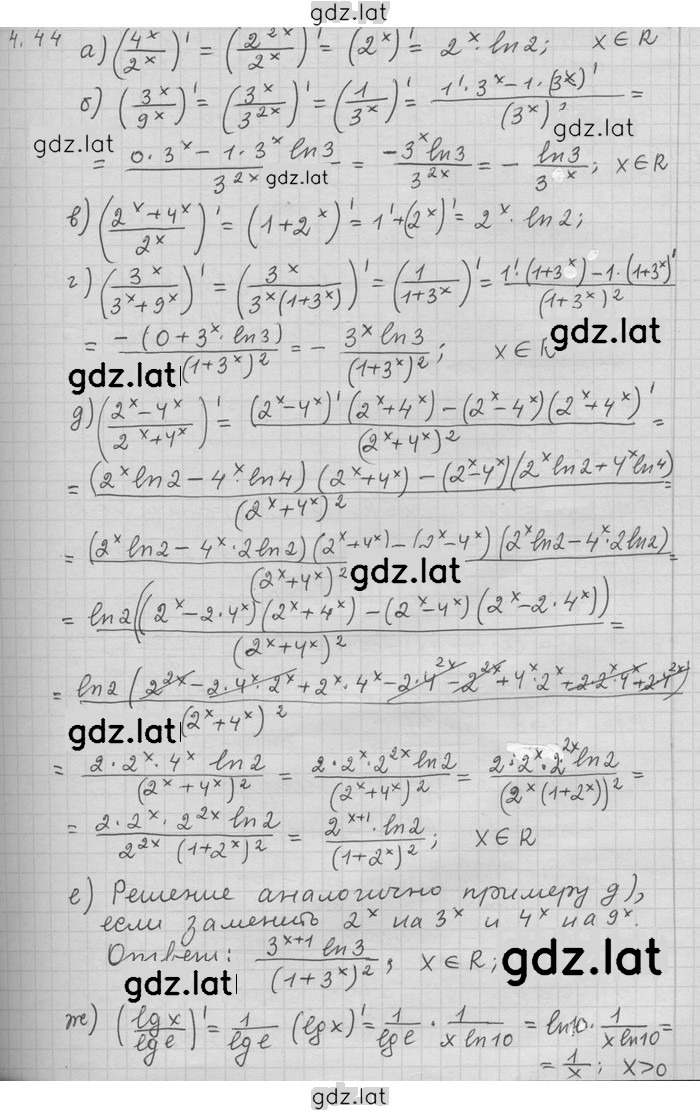 gdz.lat
4.44 а) (4^x/2^x)' = (2^{2x}/2^x)' = (2^x)' = 2^x · ln2; x ∈ R
б) (3^x/9^x)' = (3^x/3^{2x})' = (1/3^x)' = (1'·3^x − 1·(3^x)')/(3^x)² =
gdz.lat gdz.lat
= (0·3^x − 1·3^x ln3)/3^{2x} = (−3^x ln3)/3^{2x} = − ln3/3^x; x ∈ R
gdz.lat
в) ((2^x+4^x)/2^x)' = (1+2^x)' = 1'+(2^x)' = 2^x · ln2;
г) (3^x/(3^x+9^x))' = (3^x/(3^x(1+3^x)))' = (1/(1+3^x))' = (1'·(1+3^x) − 1·(1+3^x)')/(1+3^x)²
= −(0+3^x · ln3)/(1+3^x)² = − 3^x ln3/(1+3^x)²; x ∈ R
gdz.lat gdz.lat
д) ((2^x−4^x)/(2^x+4^x))' = ((2^x−4^x)'(2^x+4^x) − (2^x−4^x)(2^x+4^x)')/(2^x+4^x)² =
= ((2^x ln2 − 4^x · ln4)(2^x+4^x) − (2^x−4^x)(2^x ln2+4^x ln4))/(2^x+4^x)² =
= ((2^x ln2 − 4^x · 2ln2)(2^x+4^x) − (2^x−4^x)(2^x ln2 − 4^x · 2ln2))/(2^x+4^x)² =
gdz.lat
= ln2((2^x − 2·4^x)(2^x+4^x) − (2^x−4^x)(2^x − 2·4^x))/(2^x+4^x)² =
= ln2(2^{2x} − 2·4^x·2^x + 2^x·4^x − 2·4^{2x} − 2^{2x} + 4^x·2^x + 2·2^x·4^x + 2·4^{2x})/(2^x+4^x)²
gdz.lat
= 2·2^x·4^x ln2/(2^x+4^x)² = 2·2^x·2^{2x} ln2/(2^x+4^x)² = 2·2^x·2^{2x} ln2/(2^x(1+2^x))² =
= 2·2^x·2^{2x} ln2/(2^{2x}(1+2^x)²) = 2^{x+1}·ln2/(1+2^x)²; x ∈ R
е) Решение аналогично примеру д),
если заменить 2^x на 3^x и 4^x на 9^x.
Ответ: 3^{x+1} ln3/(1+3^x)², x ∈ R;
gdz.lat gdz.lat
ж) (lg x/lg e)' = 1/lg e (lg x)' = 1/lg e · 1/(x ln10) = ln10 · 1/(x ln10) =
= 1/x; x>0
gdz.lat